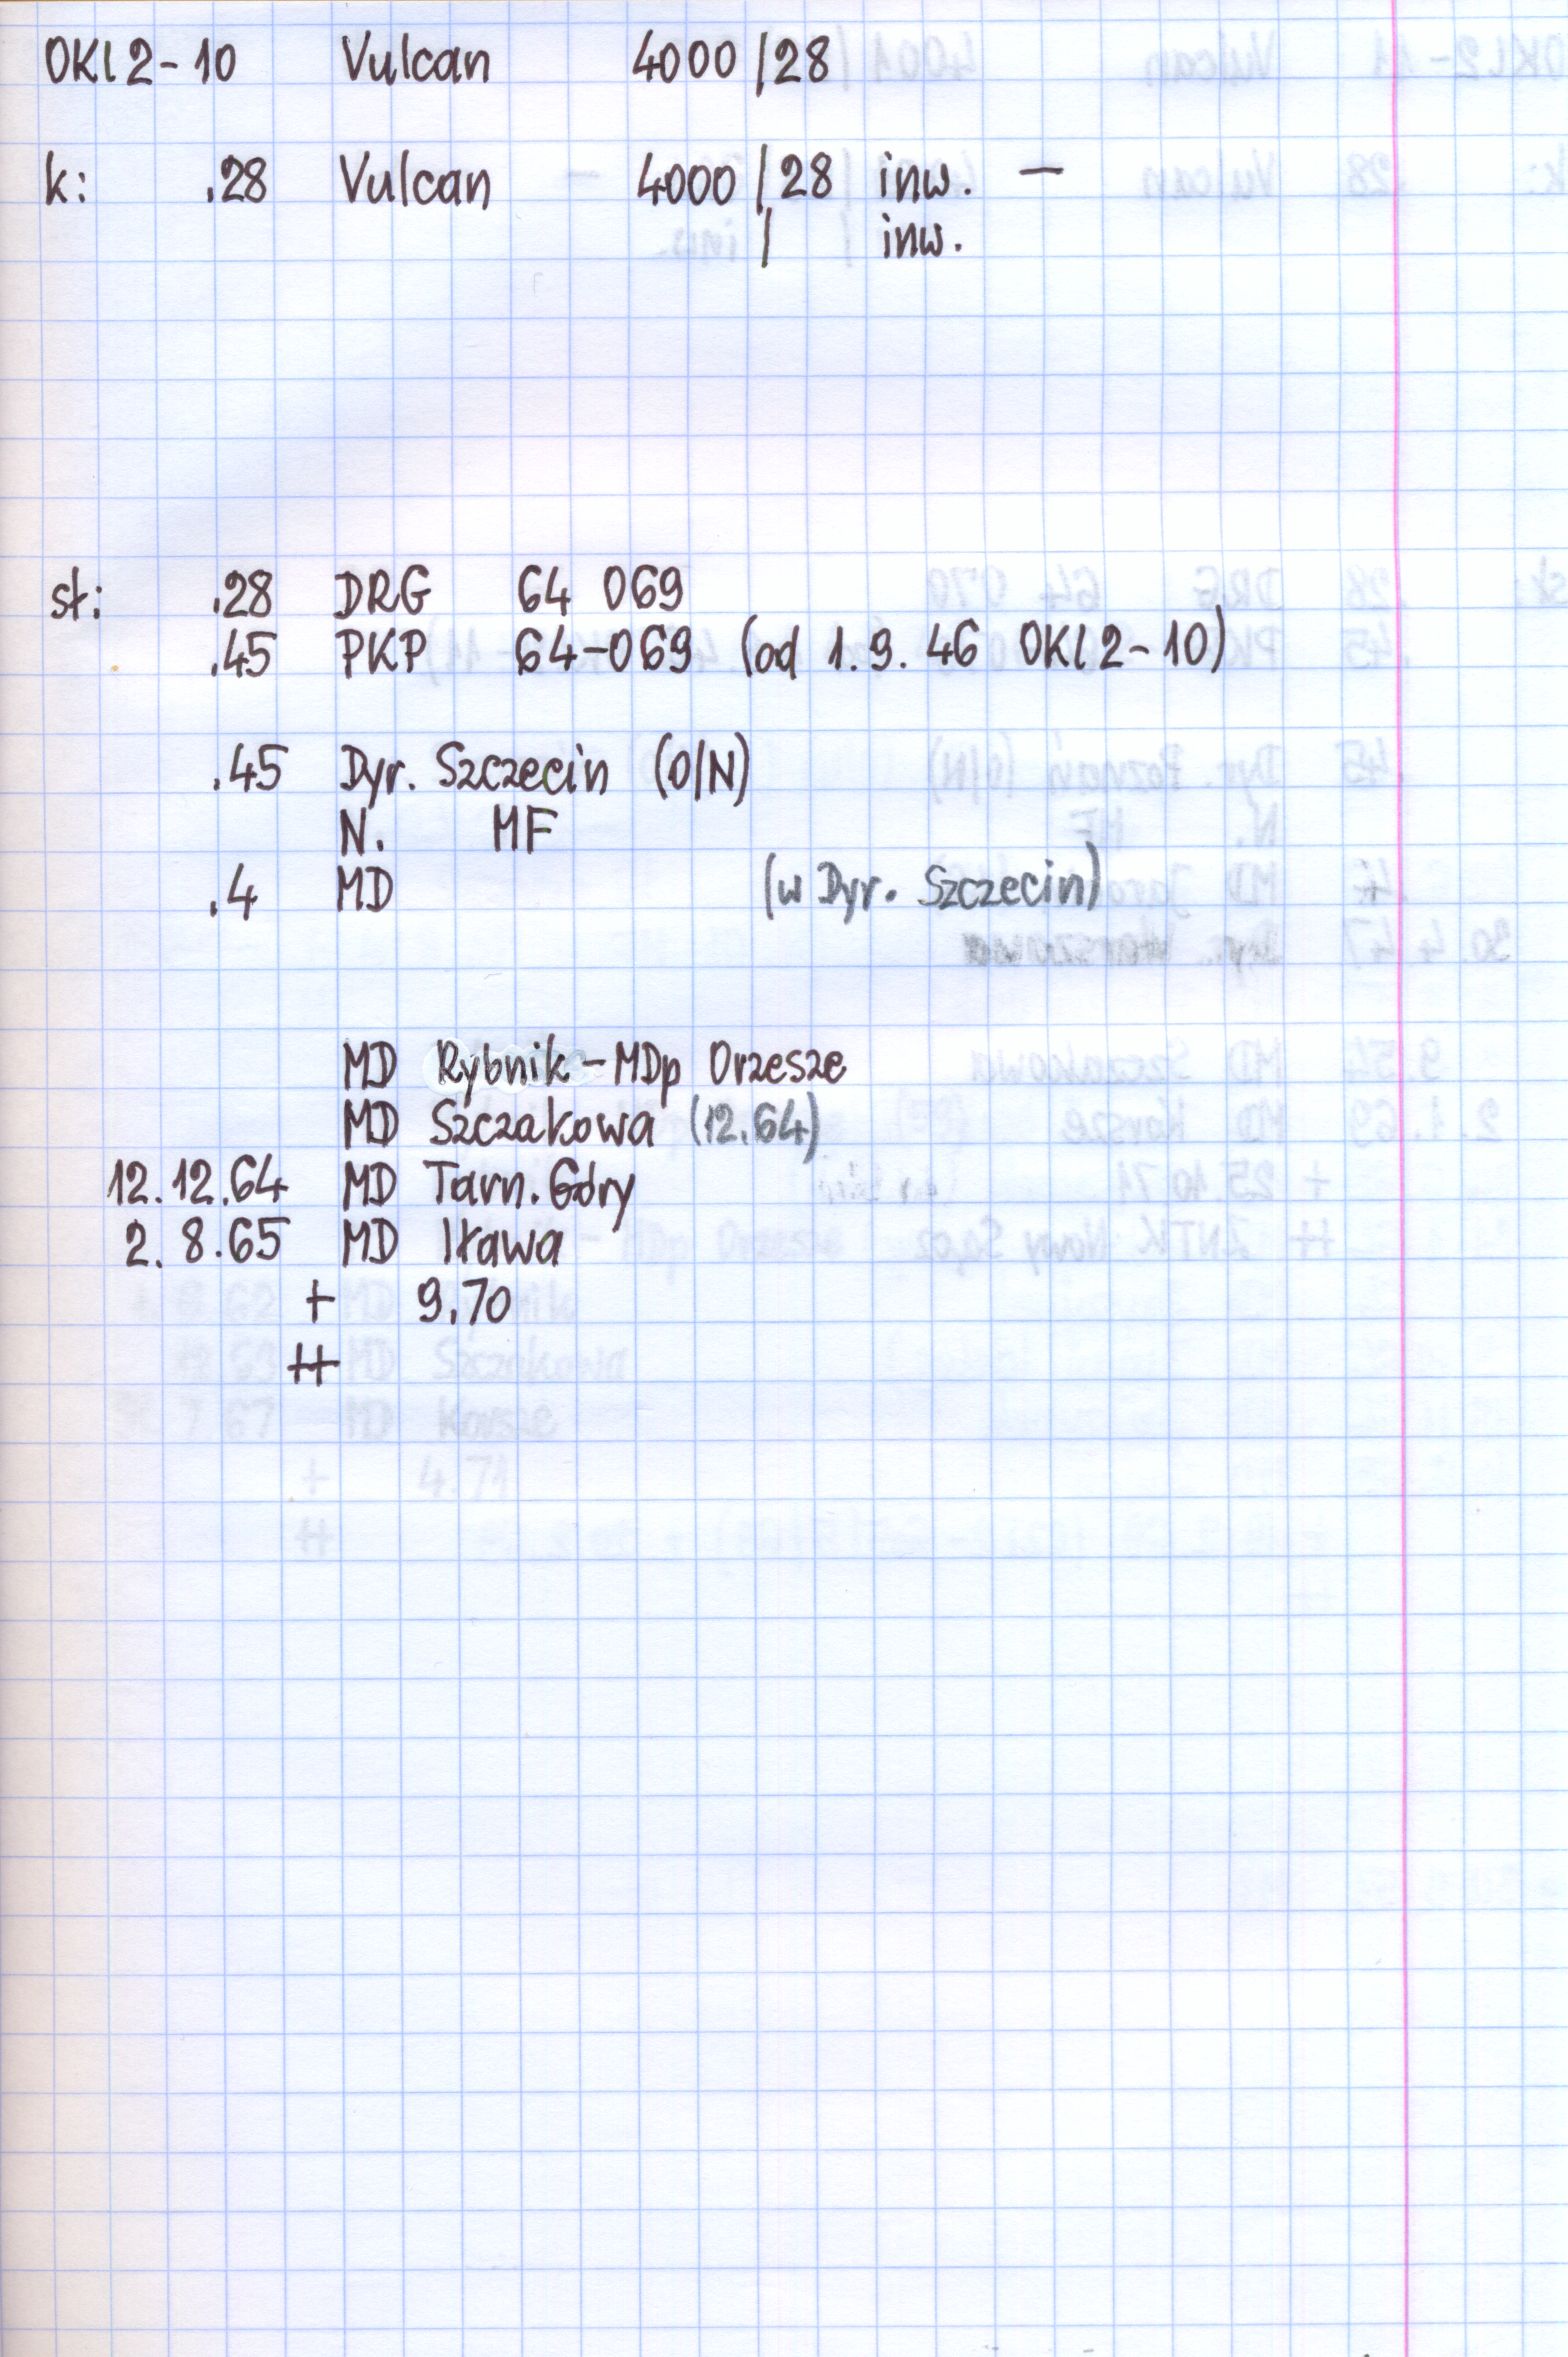 OKl2-10 Vulcan 4000/28
k: .28 Vulcan 4000/28 inw. —
/ inw.
sł: .28 DRG 64 069
.45 PKP 64-069 (od 1.9.46 OKl2-10)
.45 Dyr. Szczecin (O/N)
N. MF
.4 MD (w Dyr. Szczecin)
MD Rybnik-MDp Orzesze
MD Szczakowa (12.64)
12.12.64 MD Tarn. Góry
2.8.65 MD Iława
+ 9.70
++